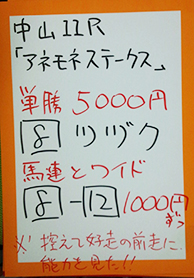 中山11R
「アネモネステークス」
単勝 5000円
8 ツヅク
馬連とワイド
8-12 1000円ずつ
※控えて好走の前走に
能力を見た!!